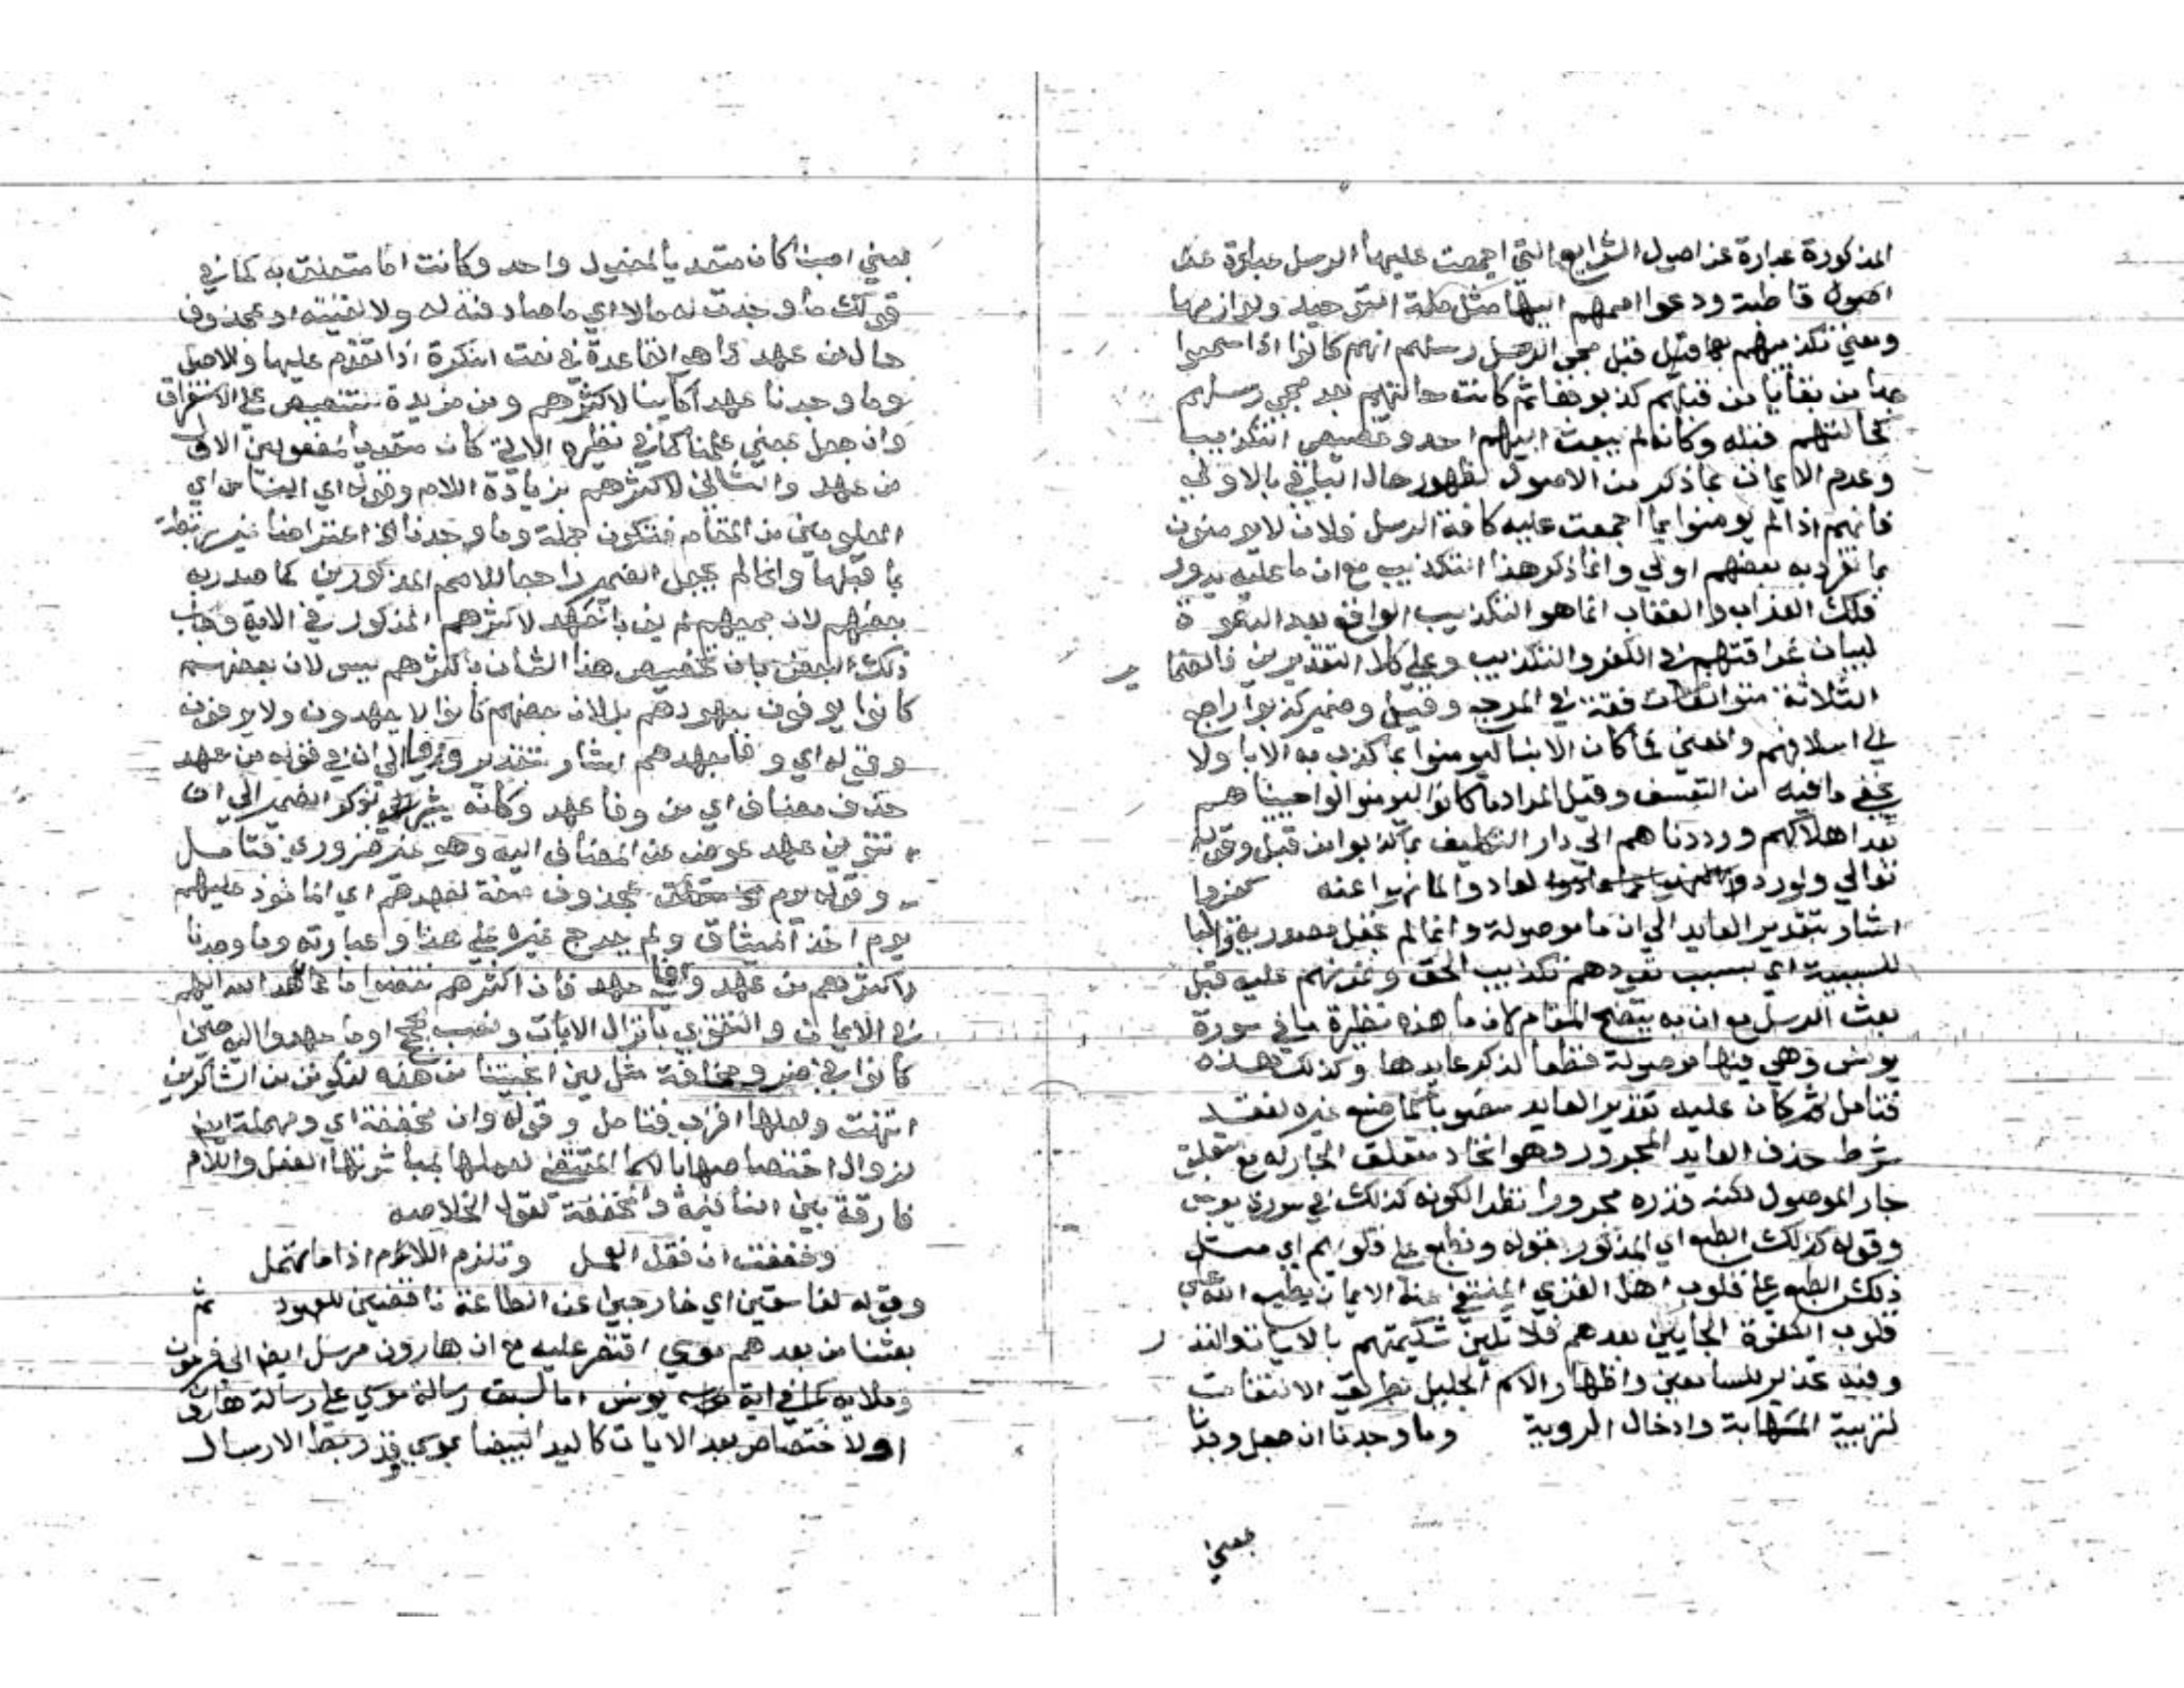 المذكورة عبارة عن اصول الشرايع التي اجمعت عليها الرسل عبارة عن
اصول قاطبة ودعوا اممهم اليها مثل ملة التوحيد ولوازمها
ومعني تكذيبهم بها قبل مجي الرسل رسلهم انهم كانوا اذا سمعوا
بها من بقايا من قبلهم كذبوها ثم كانت حالتهم بعد مجي رسلهم
كحالتهم قبله وكان لم يبعث اليهم احد وتخصيص التكذيب
وعدم الايمان بما ذكر من الاصول لظهور حال الباقي بالاولي
فانهم اذا لم يومنوا بما اجمعت عليه كافة الرسل فلان لا يومنون
بما تفرد به بعضهم اولي وانما ذكر هذا التكذيب مع ان ما عليه يدور
فلك العذاب والعقاب انما هو التكذيب الواقع بعد الدعوة
لبيان عراقتهم في الكفر والتكذيب وعلي كلا التقديرين فالضما ير
الثلاثة متوافقة في المرجع وقيل وضمير كذبوا راجع
الي اسلافهم والمعني فما كان الابنا ليومنوا بما كذب به الابا ولا
يخفي ما فيه من التعسف وقيل المراد ما كانوا ليومنوا لو احييناهم
بعد اهلاكهم ورددناهم الي دار التكليف بما كذبوا من قبل وقوله
تعالي ولو ردوا لعادوا لما نهوا عنه
اشار بتقدير العايد الي ان ما موصولة وانما لم تجعل مصدرية والبا
للسببية اي بسبب تعودهم تكذيب الحق وتمرنهم عليه قبل
بعث الرسل مع ان به يتضح المقام لان ما هذه نظيرة ما في سورة
يونس وهي فيها موصولة قطعا لذكر عايدها وكذلك هذه
فتامل ثم كان عليه تقدير العايد منصوبا كما صنع غيره لفقد
شرط حذف العايد المجرور وهو اتحاد متعلق الجار له مع متعلق
جار الموصول لكنه قدره مجرورا نظرا لكونه كذلك في سورة يونس
وقوله كذلك الطبع اي المذكور بقوله ونطبع علي قلوبهم اي مثل
ذلك الطبع علي قلوب اهل القري المنتفي عنهم الايمان يطبع الله علي
قلوب الكفرة الجايين بعدهم فلا تلين شكيمتهم بالايات والنذ ر
وفيه تحذير للسامعين واظهار الاسم الجليل بطريق الالتفات
لتربية المهابة وادخال الروعة وما وجدنا ان جعل وجدنا
بمعني
بمعني اصبنا كان متعديا لمفعول واحد وكانت اما متعلقة به كما في
قولك ما وجدت له مالا اي ما صادفته له ولا لقيته او بمحذوف
حال من عهد كما هو القاعدة في نعت النكرة اذا تقدم عليها والاصل
وما وجدنا عهدا كاينا لاكثرهم ومن مزيدة للتنصيص علي الاستغراق
وان جعل بمعني علمنا كما في نظيره الاتي كان متعديا لمفعولين الاول
من عهد والثاني لاكثرهم بزيادة اللام وقوله اي الناس اي
المعلومين من المقام فتكون جملة وما وجدنا الخ اعتراضا غير مرتبطة
بما قبلها وانما لم يجعل الضمير راجعا للامم المذكورين كما صدر به
بعضهم لان جميعهم لم يف بالعهد لا اكثرهم المذكور في الاية وجواب
ذلك البعض بان تخصيص هذا الشان باكثرهم ليس لان بعضهم
كانوا يوفون بعهودهم بل لان بعضهم كانوا لا يعهدون ولا يوفون
وقوله اي وفا بعهدهم اشار بتقدير وفا الي ان في قوله من عهد
حذف مضاف اي من وفا عهد وكانه يشير بذكر الضمير الي ان
تنوين عهد عوض عن المضاف اليه وهو غير ضروري فتامل
وقوله يوم بمحذوف صفة لعهدهم اي الماخوذ عليهم
يوم اخذ الميثاق ولم يعرج غيره علي هذا وعبارته وما وجدنا
لاكثرهم من عهد وفا عهد فان اكثرهم نقضوا ما عاهد الله اليهم
في الايمان والتقوي بانزال الايات ونصب الحجج او ما عهدوا اليه حين
كانوا في ضر ومخافة مثل لين انجيتنا من هذه لنكونن من الشاكرين
انتهت ولعلها اقرب فتامل وقوله وان مخففة اي ومهملة ايض
لزوال اختصاصها بالاسما المقتضي لعملها بمباشرتها الفعل واللام
فارقة بين النافية والمخففة كقول الخلاصه
وخففت ان فقل العمل وتلزم اللام اذا ما تهمل
وقوله لفاسقين اي خارجين عن الطاعة ناقضين للعهود ثم
بعثنا من بعدهم موسي اقتصر عليه مع ان هارون مرسل ايض الي فرعون
وملايه كما في اية يونس اما لسبق رسالة موسي علي رسالة هارون
او لاختصاص بعد الايات كاليد البيضا بموسي وقد ربط الارسال